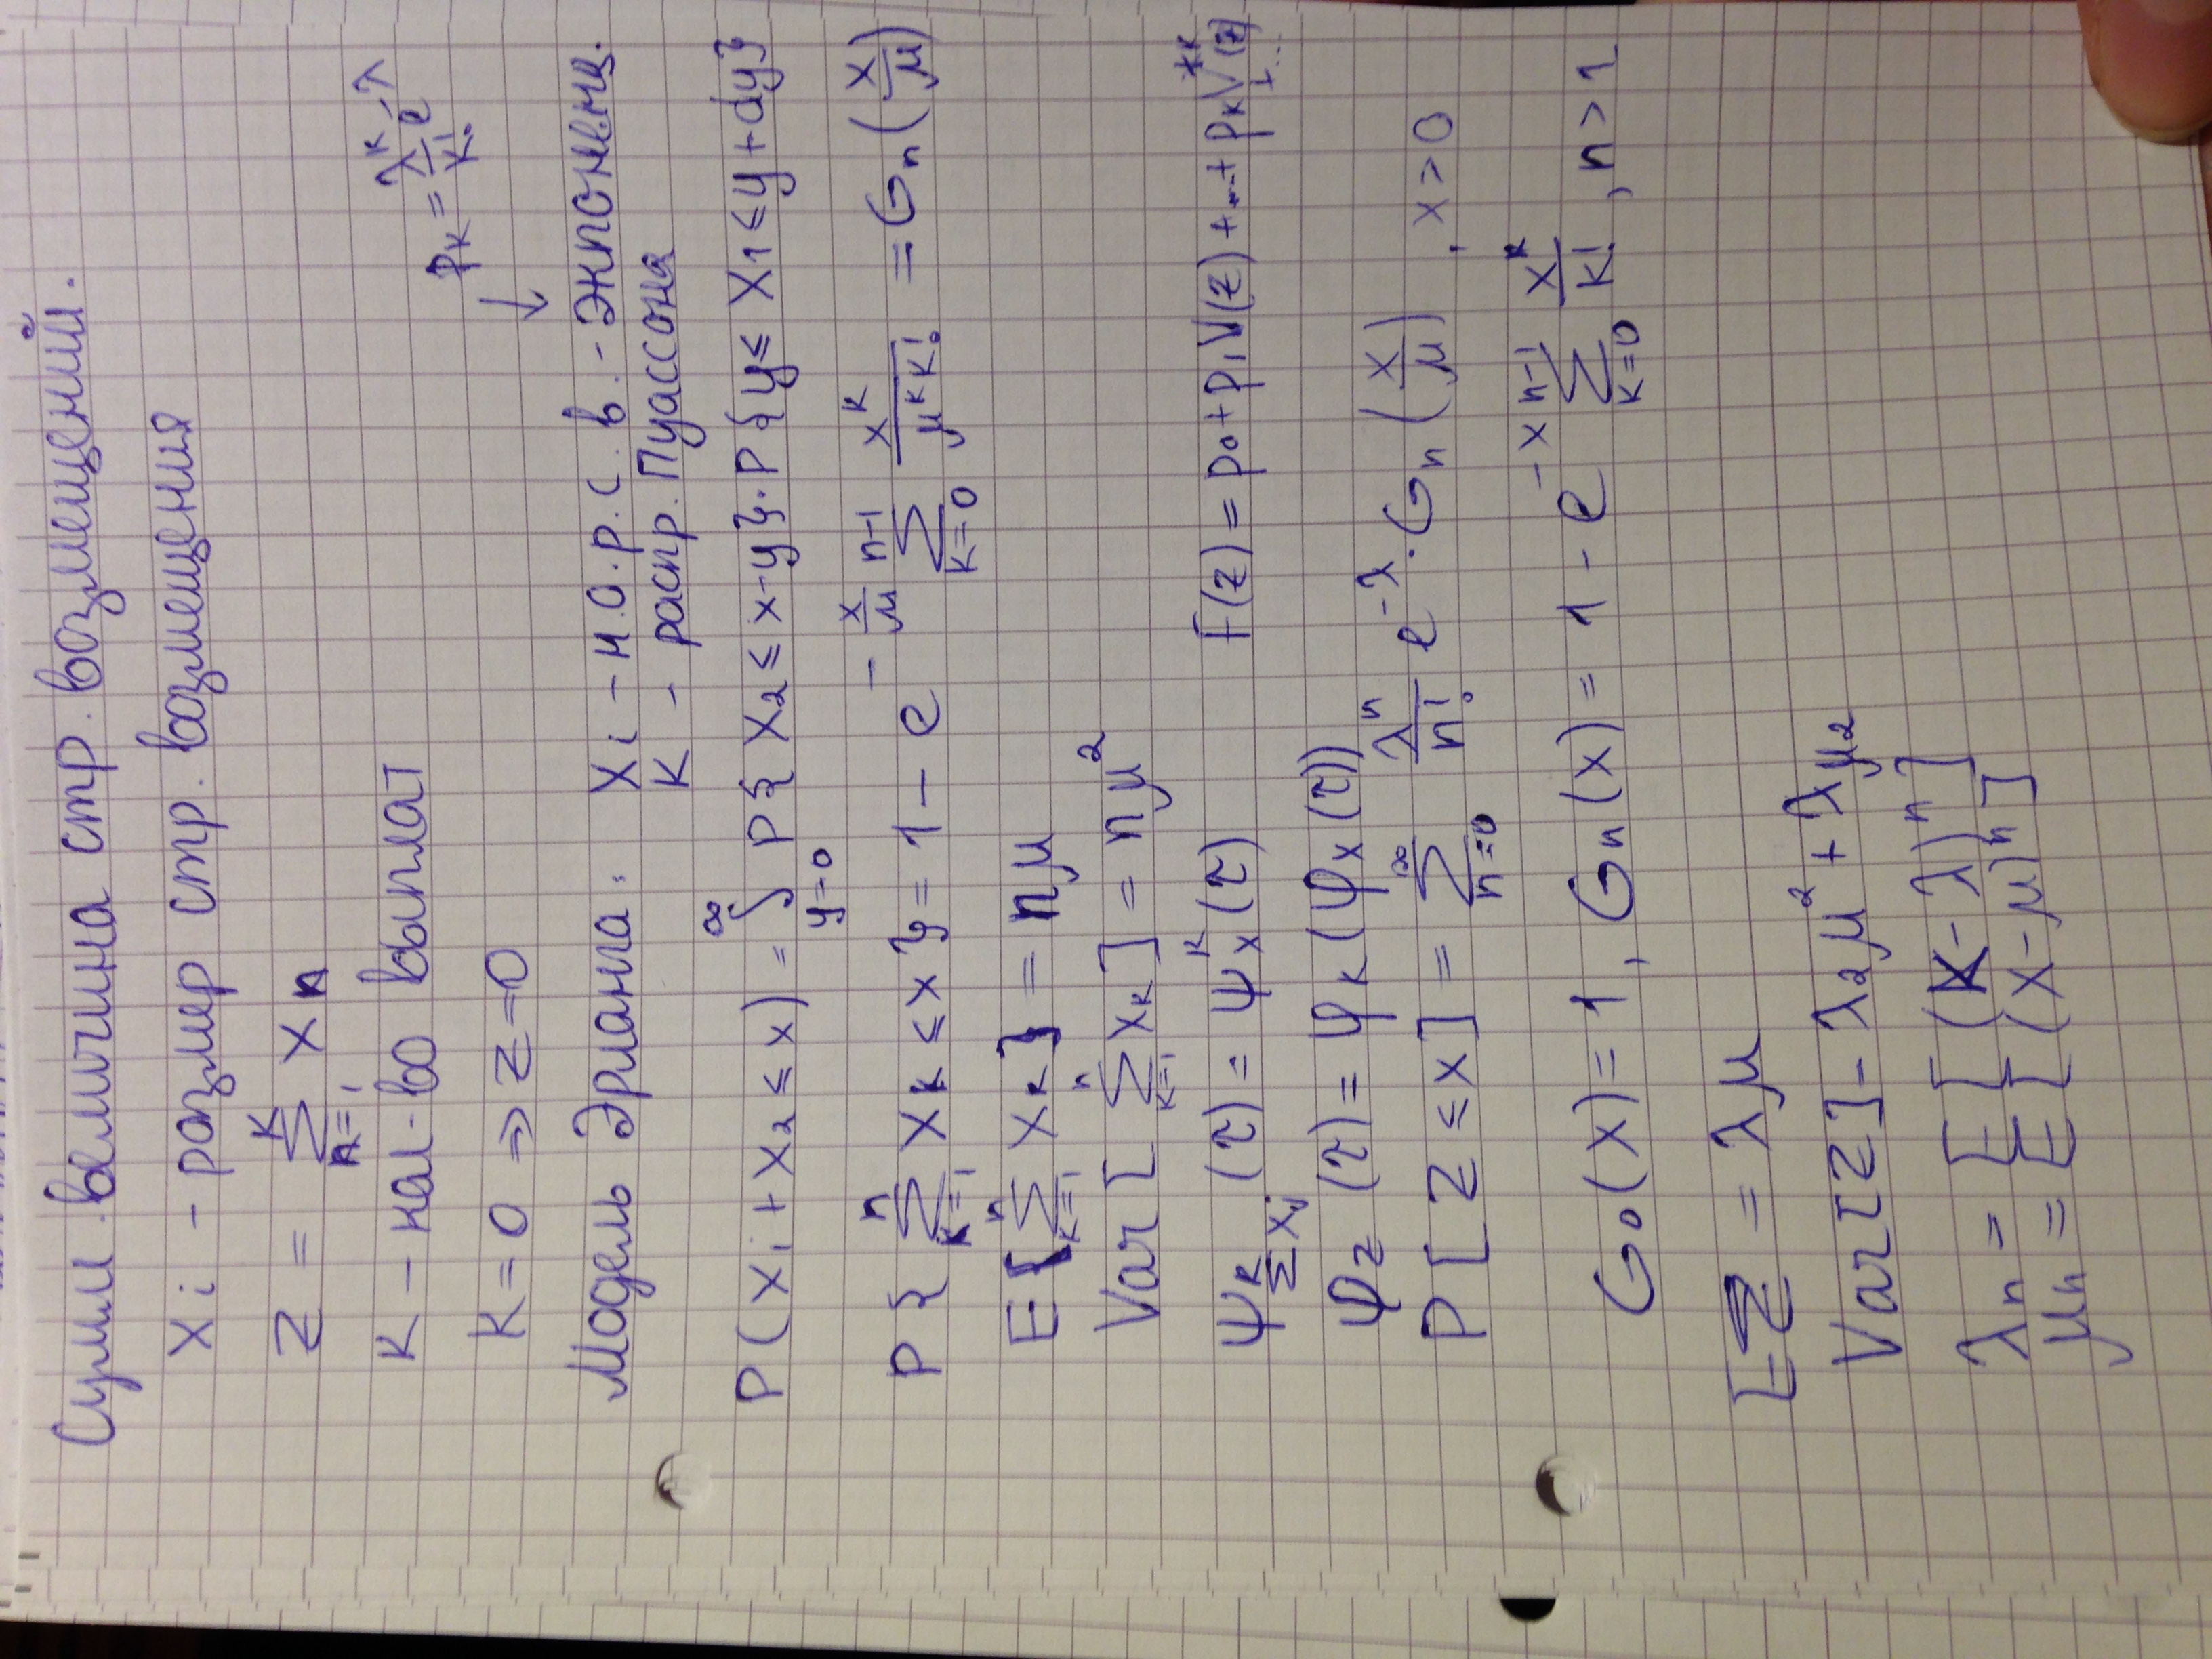 Сумм. величина стр. возмещений.
Xi - размер стр. возмещения
Z = ∑_{n=1}^{K} X_n
K - кол-во выплат
p_K = λ^K/K! e^{-λ}
K = 0 ⇒ Z = 0
↓
Модель Эрланга. Xi - н.о.р.с.в. - экпоненц.
K - распр. Пуассона
P(X_1 + X_2 ≤ x) = ∫_{y=0}^{∞} P{X_2 ≤ x-y}·P{y ≤ X_1 ≤ y+dy}
P{∑_{k=1}^{n} X_k ≤ x} = 1 - e^{-x/μ} ∑_{k=0}^{n-1} x^k/(μ^k k!) = G_n(x/μ)
E[∑_{k=1}^{n} X_k] = nμ
Var[∑_{k=1}^{n} X_k] = nμ^2
ψ_{∑^K X_j}(τ) = ψ_X^K(τ) F(z) = p_0 + p_1 V(z) + ... + p_K V^{*K}(z) + ...
φ_Z(τ) = φ_K(φ_X(τ))
P[Z ≤ x] = ∑_{n=0}^{∞} λ^n/n! e^{-λ} · G_n(x/μ), x > 0
G_0(x) = 1, G_n(x) = 1 - e^{-x} ∑_{k=0}^{n-1} x^k/k!, n > 1
EZ = λμ
Var[Z] - λ_2 μ^2 + λμ_2
λ_n = E[(K-λ)^n]
μ_n = E[(X-μ)^n]